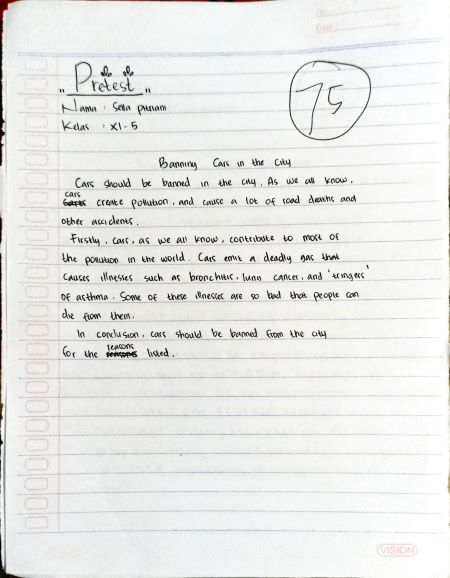 „ Pretest „
Nama : Sella putriani
Kelas : XI-5
75
Banning Cars in the City
Cars should be banned in the city. As we all know,
cars create pollution, and cause a lot of road deaths and
other accidents.
Firstly, cars, as we all know, contribute to most of
the pollution in the world. Cars emit a deadly gas that
causes illnesses such as bronchitis, lung cancer, and 'tringers'
of asthma. Some of these illnesses are so bad that people can
die from them.
In conclusion, cars should be banned from the city
for the reasons listed.
VISION